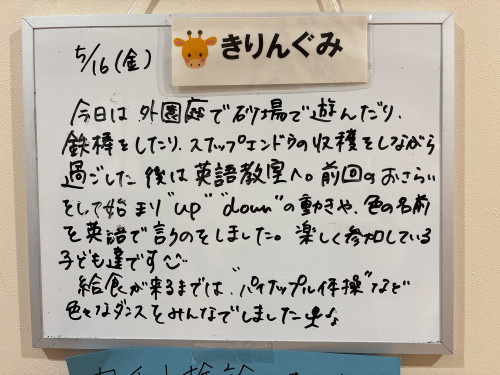 きりんぐみ
5/16(金)
今日は外園庭で砂場で遊んだり、
鉄棒をしたり、スナップエンドウの収穫をしながら
過ごした後は英語教室へ。前回のおさらい
をして始まり"up""down"の動きや、色の名前
を英語で言うのをしました。楽しく参加している
子ども達です
給食が来るまでは、"パイナップル体操"など
色々なダンスをみんなでしました